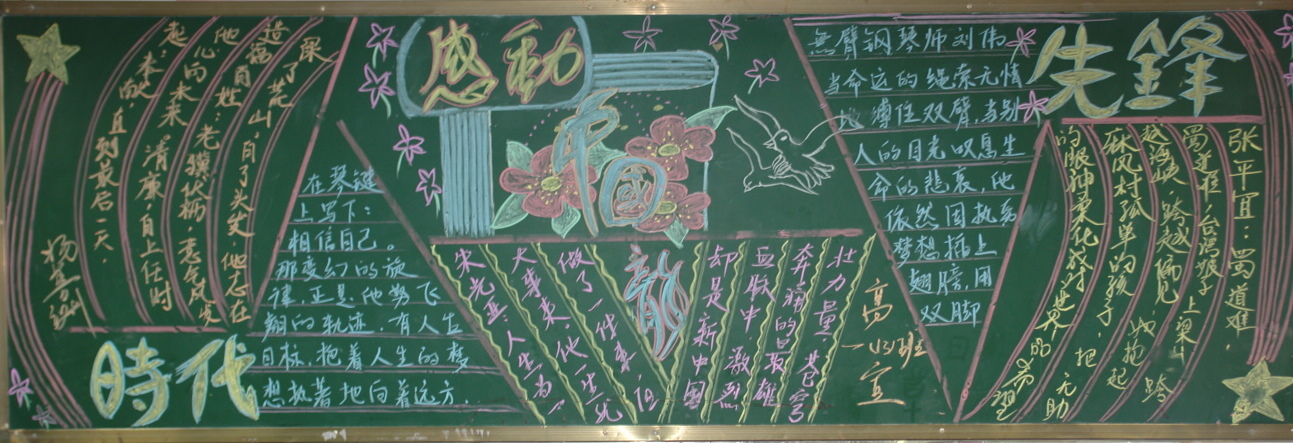 感動
中國
龍
先鋒
時代
绿了荒山,白了头发,他志在
造福百姓;老骥伏枥,意气风发
他心向未来。清廉,自上任时
起,奉献,直到最后一天。
杨善洲
無臂钢琴师刘伟
当命运的绳索无情
地缚住双臂,当别
人的目光叹息生
命的悲哀,他
依然固执为
梦想插上
翅膀,用
双脚
在琴键
上写下:
相信自己。
那变幻的旋
律,正是他努飞
翔的轨迹。有人生
目标,抱着人生的梦
想执着地向着远方.
朱光亚:人生为一
大事来,他一生就
做了一件事 但
却是新中国
血脉中 激烈
奔涌的最雄
壮力量。
高一(4)班
宣
张平宜:蜀道难,
蜀道难,台湾娘子上梁山 跨
越海峡,跨越偏见,她抱起
麻风村孤单的孩子,把无助
的眼神柔化成对世界的希望